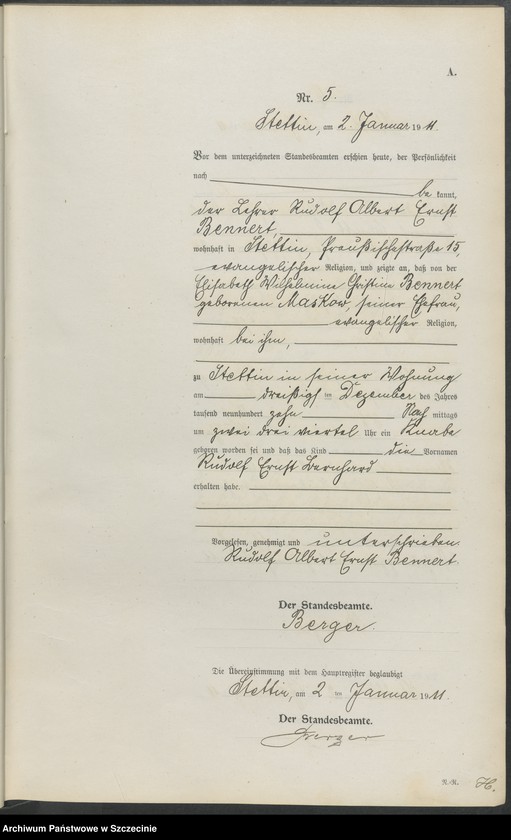 A.
Nr. 5.
Stettin, am 2. Januar 1911.
Vor dem unterzeichneten Standesbeamten erschien heute, der Persönlichkeit
nach be kannt,
der Lehrer Rudolf Albert Ernst
Bennert,
wohnhaft in Stettin, Preußischestraße 15,
evangelischer Religion, und zeigte an, daß von der
Elisabeth Wilhelmine Christine Bennert
geborenen Maskow, seiner Ehefrau,
evangelischer Religion,
wohnhaft bei ihm,
zu Stettin in seiner Wohnung
am dreißigsten Dezember des Jahres
tausend neunhundert zehn Nach mittags
um zwei drei viertel Uhr ein Knabe
geboren worden sei und daß das Kind die Vornamen
Rudolf Ernst Bernhard
erhalten habe.
Vorgelesen, genehmigt und unterschrieben.
Rudolf Albert Ernst Bennert.
Der Standesbeamte.
Berger.
Die Übereinstimmung mit dem Hauptregister beglaubigt
Stettin, am 2 ten Januar 1911.
Der Standesbeamte.
Berger
N.-R. H.
Archiwum Państwowe w Szczecinie